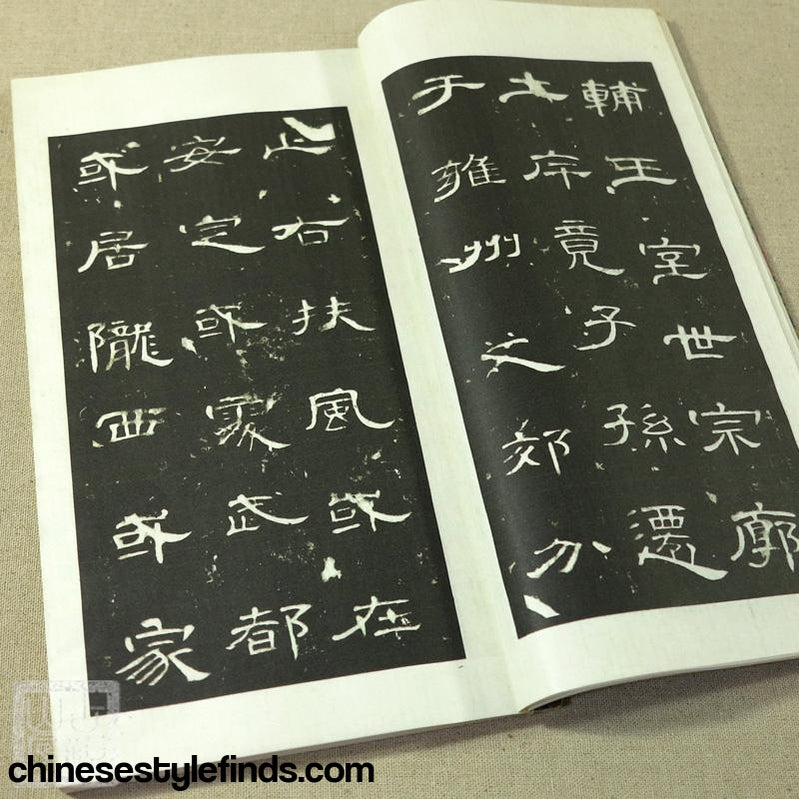 輔王室世宗廓
土斥竟子孫遷
于雍州之郊分
止右扶風或在
安定或處武都
或居隴西或家
chinesestylefinds.com